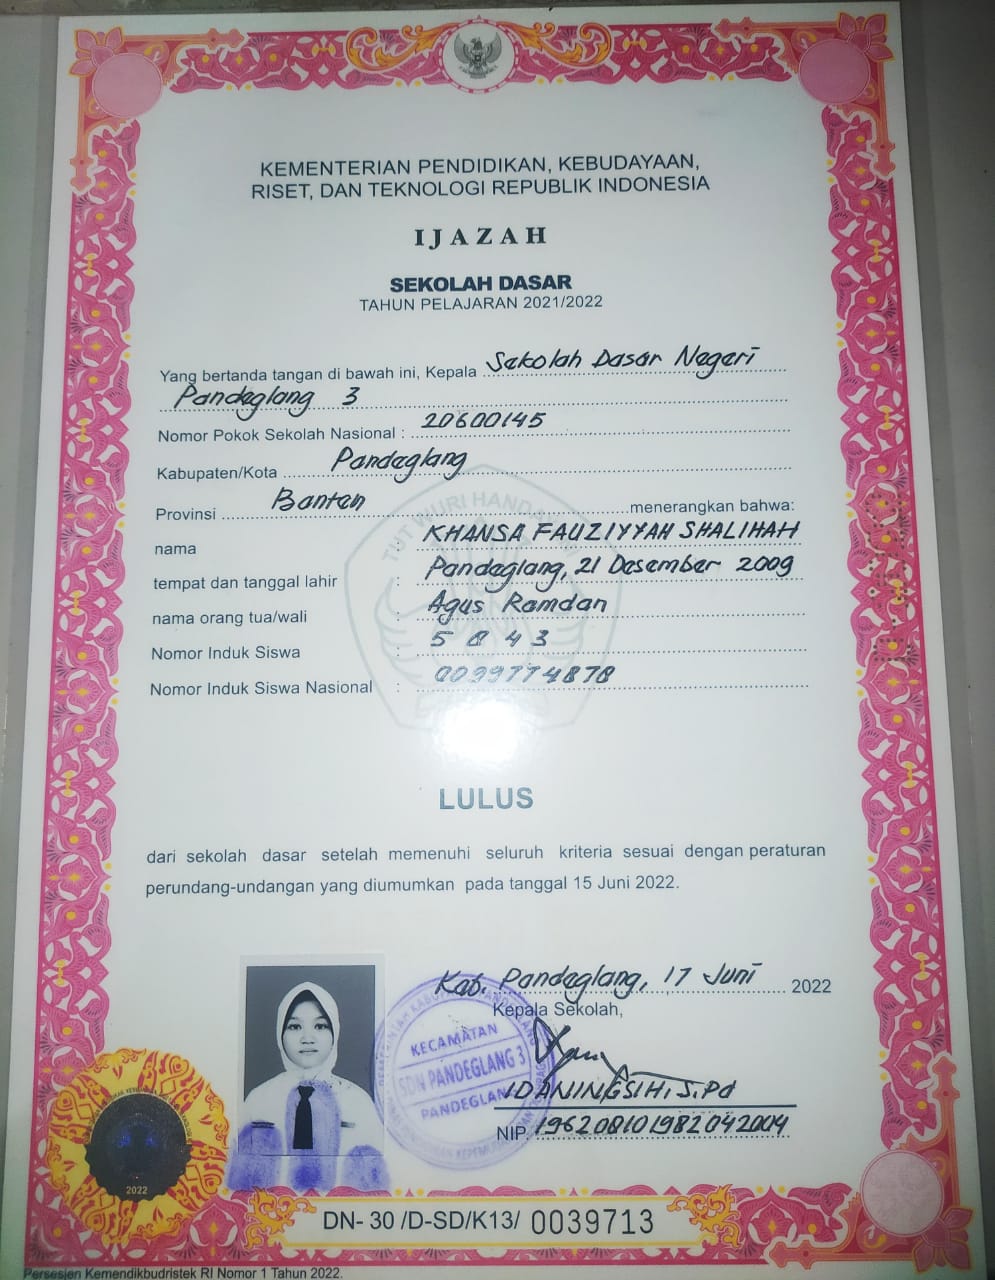 KEMENTERIAN PENDIDIKAN, KEBUDAYAAN,
RISET, DAN TEKNOLOGI REPUBLIK INDONESIA
IJAZAH
SEKOLAH DASAR
TAHUN PELAJARAN 2021/2022
Yang bertanda tangan di bawah ini, Kepala Sekolah Dasar Negeri
Pandeglang 3
Nomor Pokok Sekolah Nasional : 20600145
Kabupaten/Kota Pandeglang
Provinsi Banten menerangkan bahwa:
nama : KHANSA FAUZIYYAH SHALIHAH
tempat dan tanggal lahir : Pandeglang, 21 Desember 2009
nama orang tua/wali : Agus Ramdan
Nomor Induk Siswa : 5843
Nomor Induk Siswa Nasional : 0099774878
TUT WURI HANDAYANI
LULUS
dari sekolah dasar setelah memenuhi seluruh kriteria sesuai dengan peraturan
perundang-undangan yang diumumkan pada tanggal 15 Juni 2022.
Kab. Pandeglang, 17 Juni 2022
Kepala Sekolah,
KECAMATAN
SDN PANDEGLANG 3
PANDEGLANG
IDANINGSIH, S.Pd
NIP. 196208101982042004
2022
DN- 30 /D-SD/K13/ 0039713
Persesjen Kemendikbudristek RI Nomor 1 Tahun 2022.